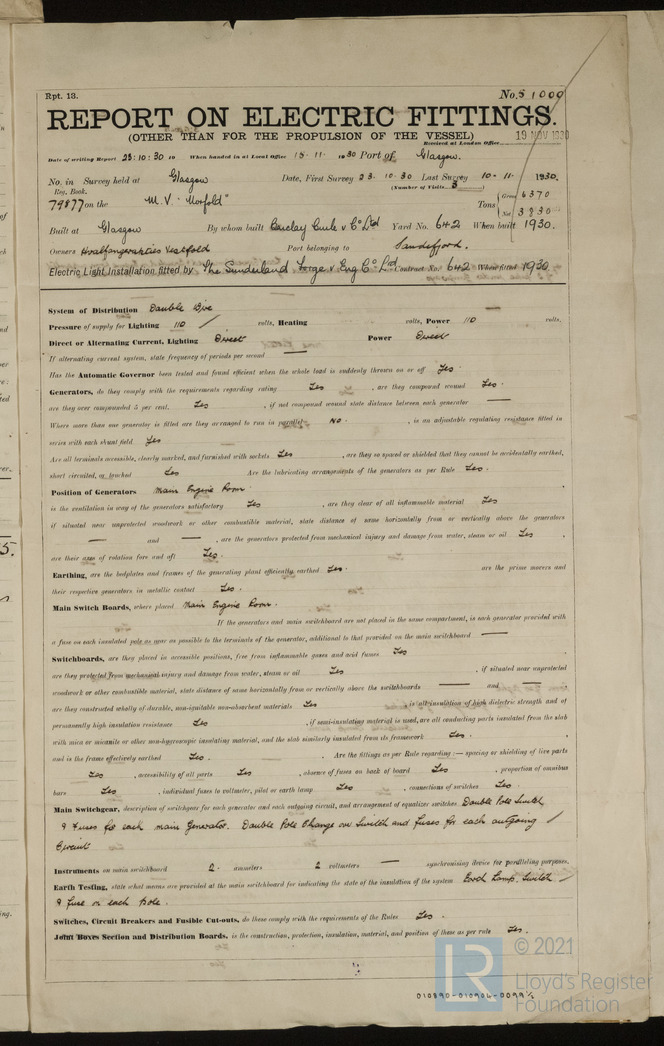 Rpt. 13.
No. 51000
REPORT ON ELECTRIC FITTINGS.
(OTHER THAN FOR THE PROPULSION OF THE VESSEL)
Received at London Office 19 NOV 1930
Date of writing Report 23:10:30 19 When handed in at Local Office 15·11· 1930 Port of Glasgow.
No. in Survey held at Glasgow Date, First Survey 23.10.30 Last Survey 10-11- 1930.
Reg. Book. (Number of Visits 3)
79877 on the M.V. "Norfold" Tons Gross 6370 Net 3830
Built at Glasgow By whom built Barclay Curle & Co Ltd Yard No. 642 When built 1930.
Owners Hvalfangerakties Vestfold Port belonging to Sandefjord.
Electric Light Installation fitted by The Sunderland Forge & Eng Co Ltd Contract No. 642 When fitted 1930
System of Distribution Double Wire
Pressure of supply for Lighting 110 volts, Heating volts, Power 110 volts.
Direct or Alternating Current, Lighting Direct Power Direct
If alternating current system, state frequency of periods per second —
Has the Automatic Governor been tested and found efficient when the whole load is suddenly thrown on or off Yes.
Generators, do they comply with the requirements regarding rating Yes, are they compound wound Yes.
are they over compounded 5 per cent. Yes, if not compound wound state distance between each generator —
Where more than one generator is fitted are they arranged to run in parallel No., is an adjustable regulating resistance fitted in
series with each shunt field Yes
Are all terminals accessible, clearly marked, and furnished with sockets Yes, are they so spaced or shielded that they cannot be accidentally earthed,
short circuited, or touched Yes Are the lubricating arrangements of the generators as per Rule Yes.
Position of Generators Main Engine Room
is the ventilation in way of the generators satisfactory Yes, are they clear of all inflammable material Yes
if situated near unprotected woodwork or other combustible material, state distance of same horizontally from or vertically above the generators
— and —, are the generators protected from mechanical injury and damage from water, steam or oil Yes,
are their axes of rotation fore and aft Yes.
Earthing, are the bedplates and frames of the generating plant efficiently earthed Yes. are the prime movers and
their respective generators in metallic contact Yes.
Main Switch Boards, where placed Main Engine Room.
If the generators and main switchboard are not placed in the same compartment, is each generator provided with
a fuse on each insulated pole as near as possible to the terminals of the generator, additional to that provided on the main switchboard —
Switchboards, are they placed in accessible positions, free from inflammable gases and acid fumes Yes.
are they protected from mechanical injury and damage from water, steam or oil Yes, if situated near unprotected
woodwork or other combustible material, state distance of same horizontally from or vertically above the switchboards — and —
are they constructed wholly of durable, non-ignitable non-absorbent materials Yes, is all insulation of high dielectric strength and of
permanently high insulation resistance Yes, if semi-insulating material is used, are all conducting parts insulated from the slab
with mica or micanite or other non-hygroscopic insulating material, and the slab similarly insulated from its framework Yes.
and is the frame effectively earthed Yes. Are the fittings as per Rule regarding:— spacing or shielding of live parts
Yes, accessibility of all parts Yes, absence of fuses on back of board Yes, proportion of omnibus
bars Yes, individual fuses to voltmeter, pilot or earth lamp Yes, connections of switches Yes.
Main Switchgear, description of switchgear for each generator and each outgoing circuit, and arrangement of equalizer switches Double Pole Switch
& Fuses for each main Generator. Double Pole Change on Switch and fuses for each outgoing
Circuit
Instruments on main switchboard 2. ammeters 2 voltmeters — synchronising device for paralleling purposes.
Earth Testing, state what means are provided at the main switchboard for indicating the state of the insulation of the system Earth Lamp, Switch
& fuse on each Pole.
Switches, Circuit Breakers and Fusible Cut-outs, do these comply with the requirements of the Rules Yes.
Joint Boxes Section and Distribution Boards, is the construction, protection, insulation, material, and position of these as per rule Yes.
LR
© 2021
Lloyd's Register
Foundation
010890-010906-0099½